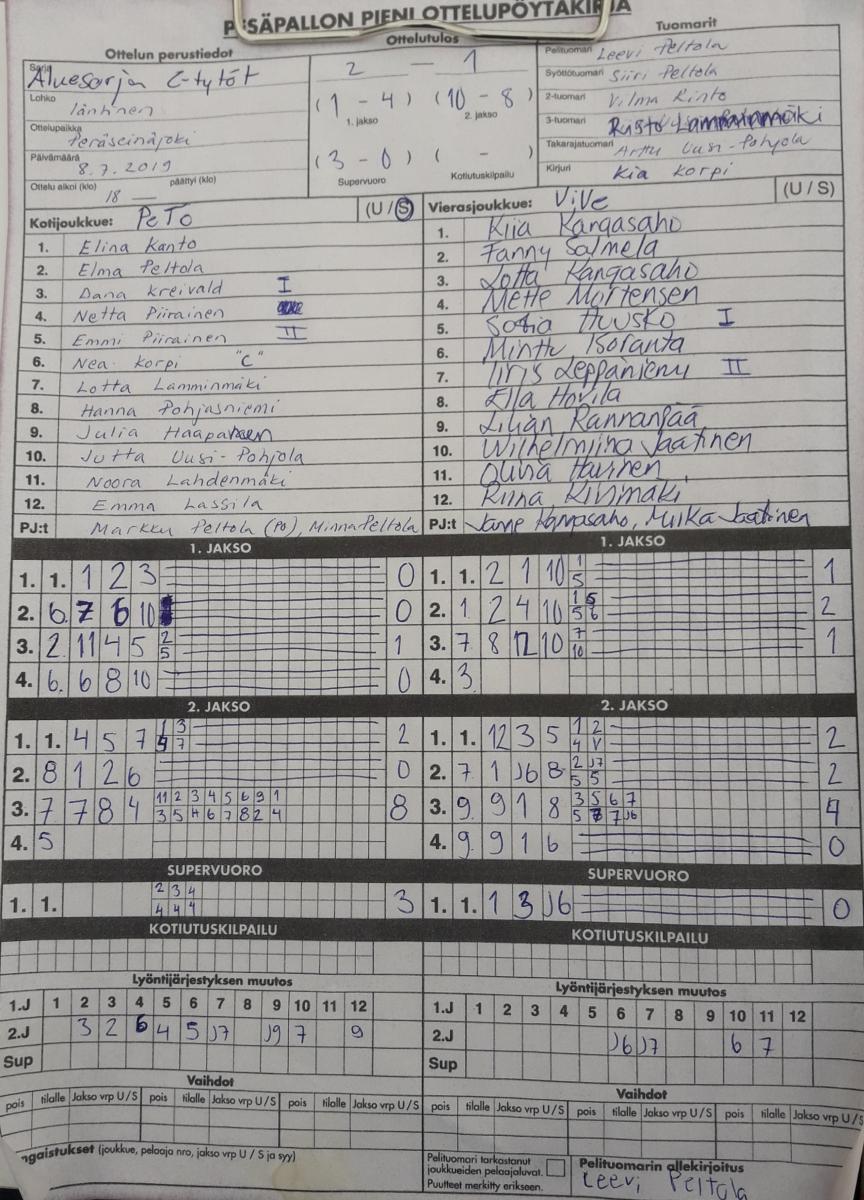 PESÄPALLON PIENI OTTELUPÖYTÄKIRJA
Ottelun perustiedot
Sarja Aluesarja C-tytöt
Lohko läntinen
Ottelupaikka Peräseinäjoki
Päivämäärä 8.7.2019
Ottelu alkoi (klo) 18 — päättyi (klo)
Ottelutulos
2 — 1
(1 - 4) (10 - 8)
1. jakso 2. jakso
(3 - 0) ( - )
Supervuoro Kotiutuskilpailu
Tuomarit
Pelituomari Leevi Peltola
Syöttötuomari Siiri Peltola
2-tuomari Vilma Rinto
3-tuomari Risto
Takarajatuomari Arttu Uusi-Pohjola
Kirjuri Kia Korpi
Kotijoukkue: PeTo (U / S)
1. Elina Kanto
2. Elma Peltola
3. Dana Kreivald I
4. Netta Piirainen
5. Emmi Piirainen II
6. Nea Korpi "C"
7. Lotta Lamminmäki
8. Hanna Pohjasniemi
9. Julia
10. Jutta Uusi-Pohjola
11. Noora Lahdenmäki
12. Emma Lassila
PJ:t Markku Peltola (PO), Minna Peltola
Vierasjoukkue: ViVe (U / S)
1. Kiia Kangasaho
2. Fanny Salmela
3. Lotta Kangasaho
4. Mette Mortensen
5. Sofia Huusko I
6. Minttu Isoranta
7. Iiris Leppäniemi II
8. Ella Hovila
9. Lilian Rannanjää
10. Wilhelmiina Jaatinen
11.
12. Riina Kivimäki
PJ:t Janne Kangasaho, Miika Jaatinen
1. JAKSO
1. 1. 1 2 3 0
2. 6. 7 6 10 0
3. 2 11 4 5 2 1
5
4. 6. 6 8 10 0
1. JAKSO
1. 1. 2 1 10 1 1
5
2. 1 2 4 10 1 5 2
5 6
3. 7 8 12 10 7 1
10
4. 3.
2. JAKSO
1. 1. 4 5 7 1 3 2
4 7
2. 8 1 2 6 0
3. 7 7 8 4 11 2 3 4 5 6 9 1 8
3 5 4 6 7 8 2 4
4. 5
2. JAKSO
1. 1. 12 3 5 1 2 2
4 V
2. 7. 1 J6 8 2 J7 2
5 5
3. 9. 9 1 8 3 5 6 7 4
5 7 7 J6
4. 9. 9 1 6 0
SUPERVUORO
1. 1. 2 3 4 3
4 4 4
SUPERVUORO
1. 1. 1 3 J6 0
KOTIUTUSKILPAILU
KOTIUTUSKILPAILU
Lyöntijärjestyksen muutos
1.J 1 2 3 4 5 6 7 8 9 10 11 12
2.J 3 2 6 4 5 J7 J9 7 9
Sup
Lyöntijärjestyksen muutos
1.J 1 2 3 4 5 6 7 8 9 10 11 12
2.J J6 J7 6 7
Sup
Vaihdot
pois tilalle Jakso vrp U / S pois tilalle Jakso vrp U / S pois tilalle Jakso vrp U / S
Vaihdot
pois tilalle Jakso vrp U / S pois tilalle Jakso vrp U / S pois tilalle Jakso vrp U / S
ngaistukset (joukkue, pelaaja nro, jakso vrp U / S ja syy)
Pelituomari tarkastanut
joukkueiden pelaajaluvat.
Puutteet merkitty erikseen.
Pelituomarin allekirjoitus
Leevi Peltola